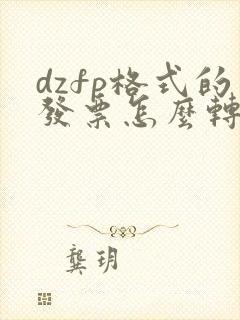 dzfp格式的
發票怎麼轉
龔玥